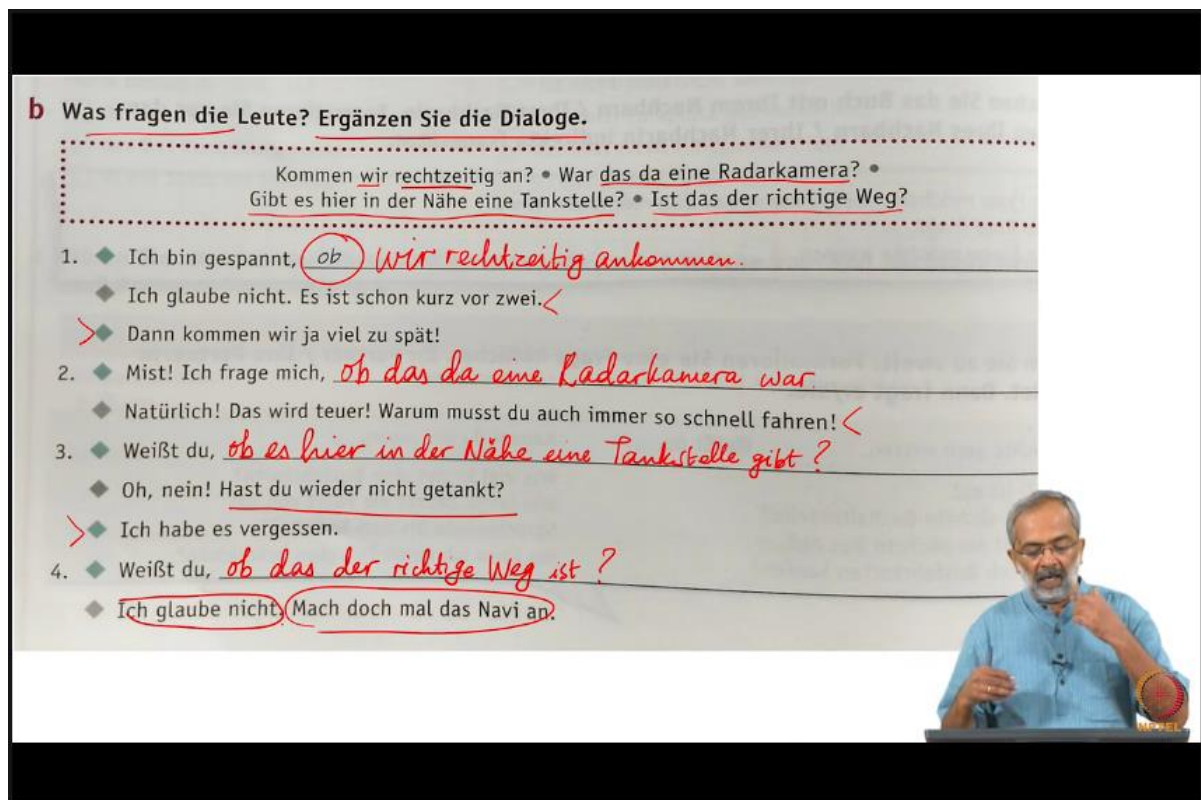 b Was fragen die Leute? Ergänzen Sie die Dialoge.
Kommen wir rechtzeitig an? • War das da eine Radarkamera? •
Gibt es hier in der Nähe eine Tankstelle? • Ist das der richtige Weg?
1. ◆ Ich bin gespannt, ob wir rechtzeitig ankommen.
◆ Ich glaube nicht. Es ist schon kurz vor zwei.
◆ Dann kommen wir ja viel zu spät!
2. ◆ Mist! Ich frage mich, ob das da eine Radarkamera war.
◆ Natürlich! Das wird teuer! Warum musst du auch immer so schnell fahren!
3. ◆ Weißt du, ob es hier in der Nähe eine Tankstelle gibt?
◆ Oh, nein! Hast du wieder nicht getankt?
◆ Ich habe es vergessen.
4. ◆ Weißt du, ob das der richtige Weg ist?
◆ Ich glaube nicht. Mach doch mal das Navi an.
NPTEL